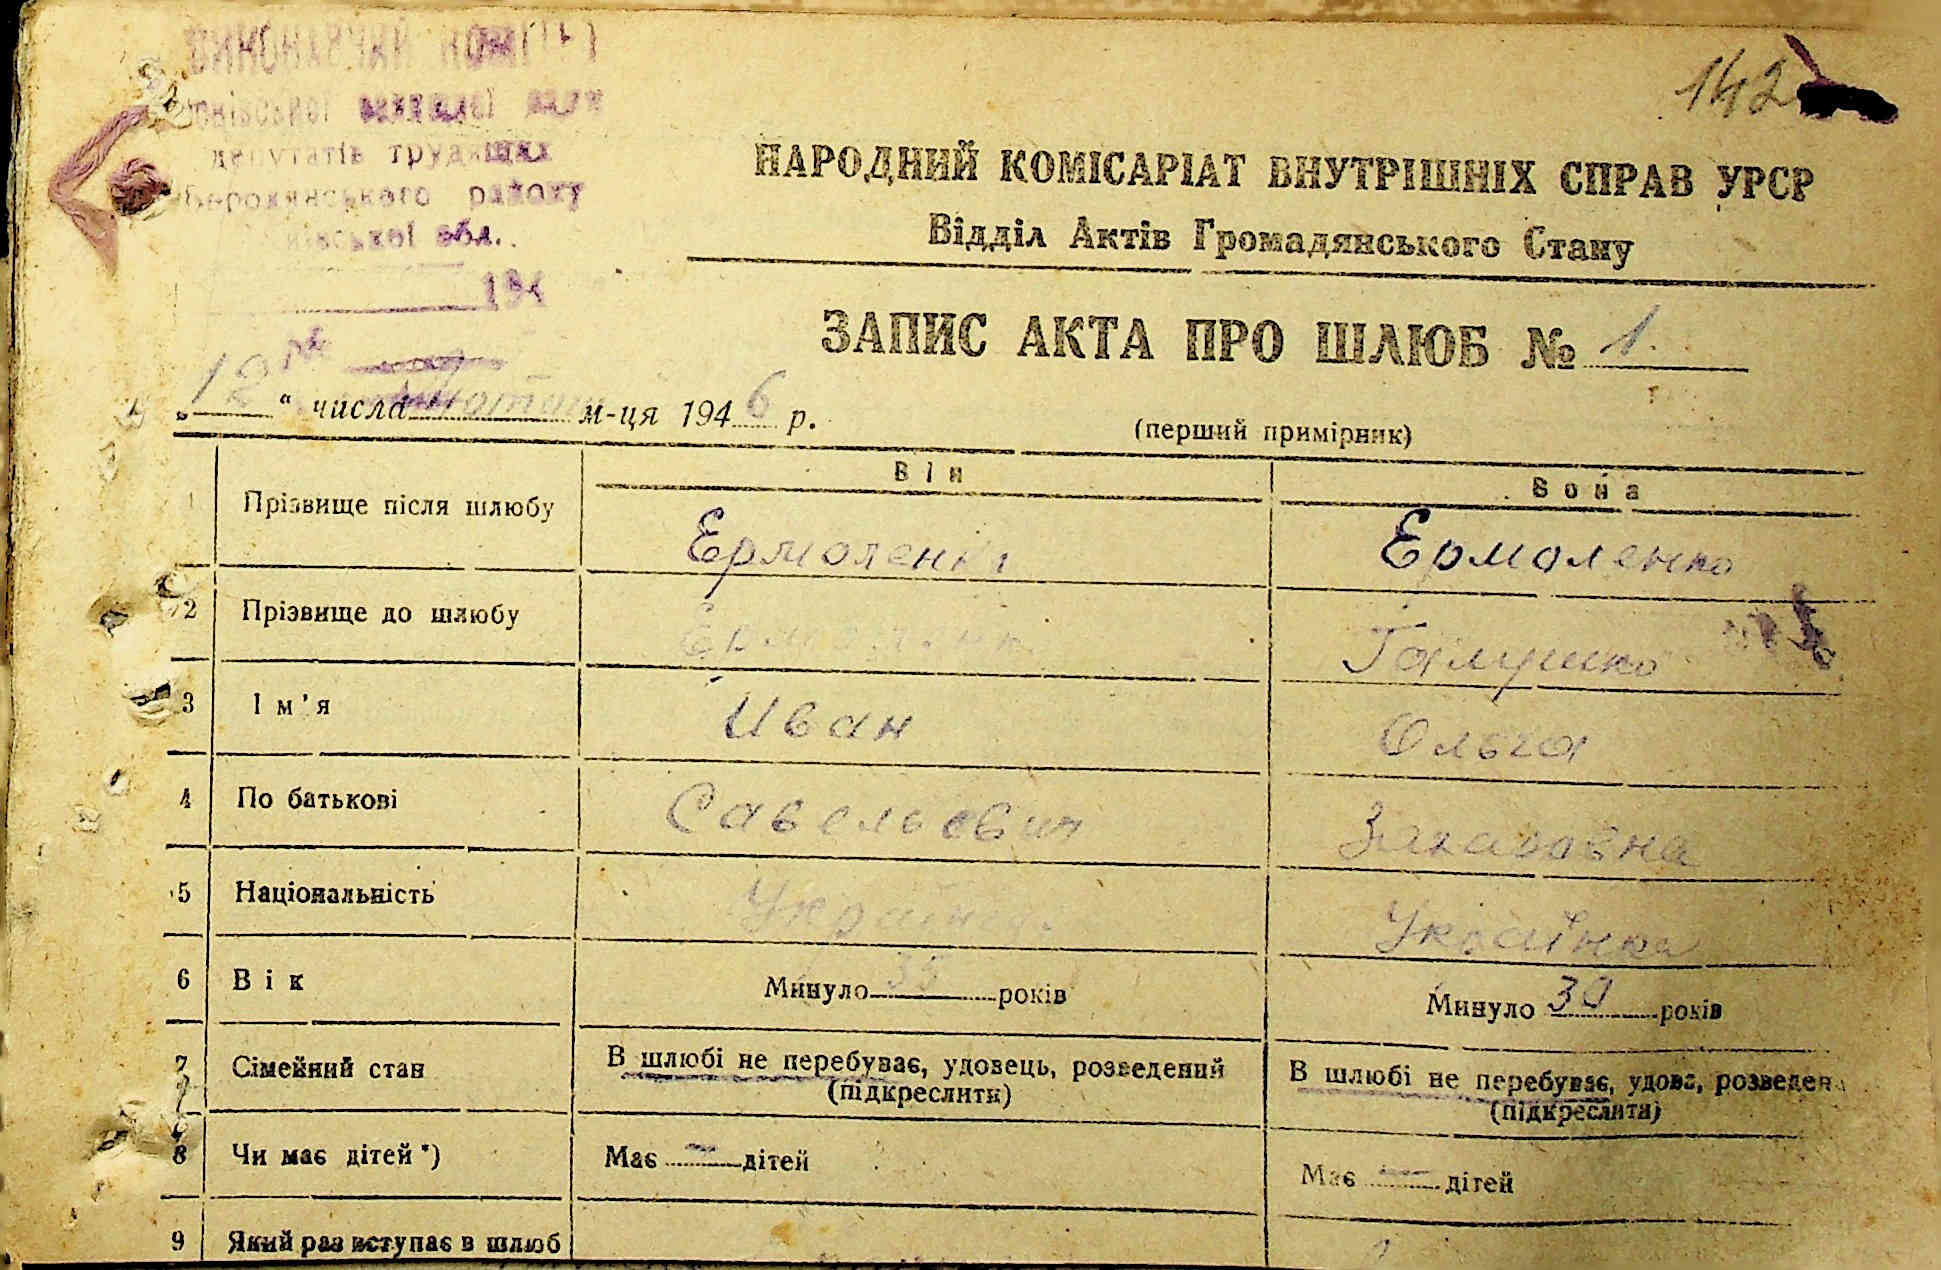 142
ВИКОНАВЧИЙ КОМІТЕТ
депутатів трудящих
Бородянського району
Київської обл.
194
НАРОДНИЙ КОМІСАРІАТ ВНУТРІШНІХ СПРАВ УРСР
Відділ Актів Громадянського Стану
ЗАПИС АКТА ПРО ШЛЮБ № 1
„12“ числа м-ця 1946 р.
(перший примірник)
Він Вона
1 Прізвище після шлюбу Ермоленко Ермоленко
2 Прізвище до шлюбу Ермоленко Галушко
3 Ім'я Иван Ольга
4 По батькові Савельевич Захаровна
5 Національність Українец Українка
6 Вік Минуло 35 років Минуло 30 років
7 Сімейний стан В шлюбі не перебуває, удовець, розведений В шлюбі не перебуває, удова, розведена
(підкреслити) (підкреслити)
8 Чи має дітей *) Має — дітей Має — дітей
9 Який раз вступає в шлюб